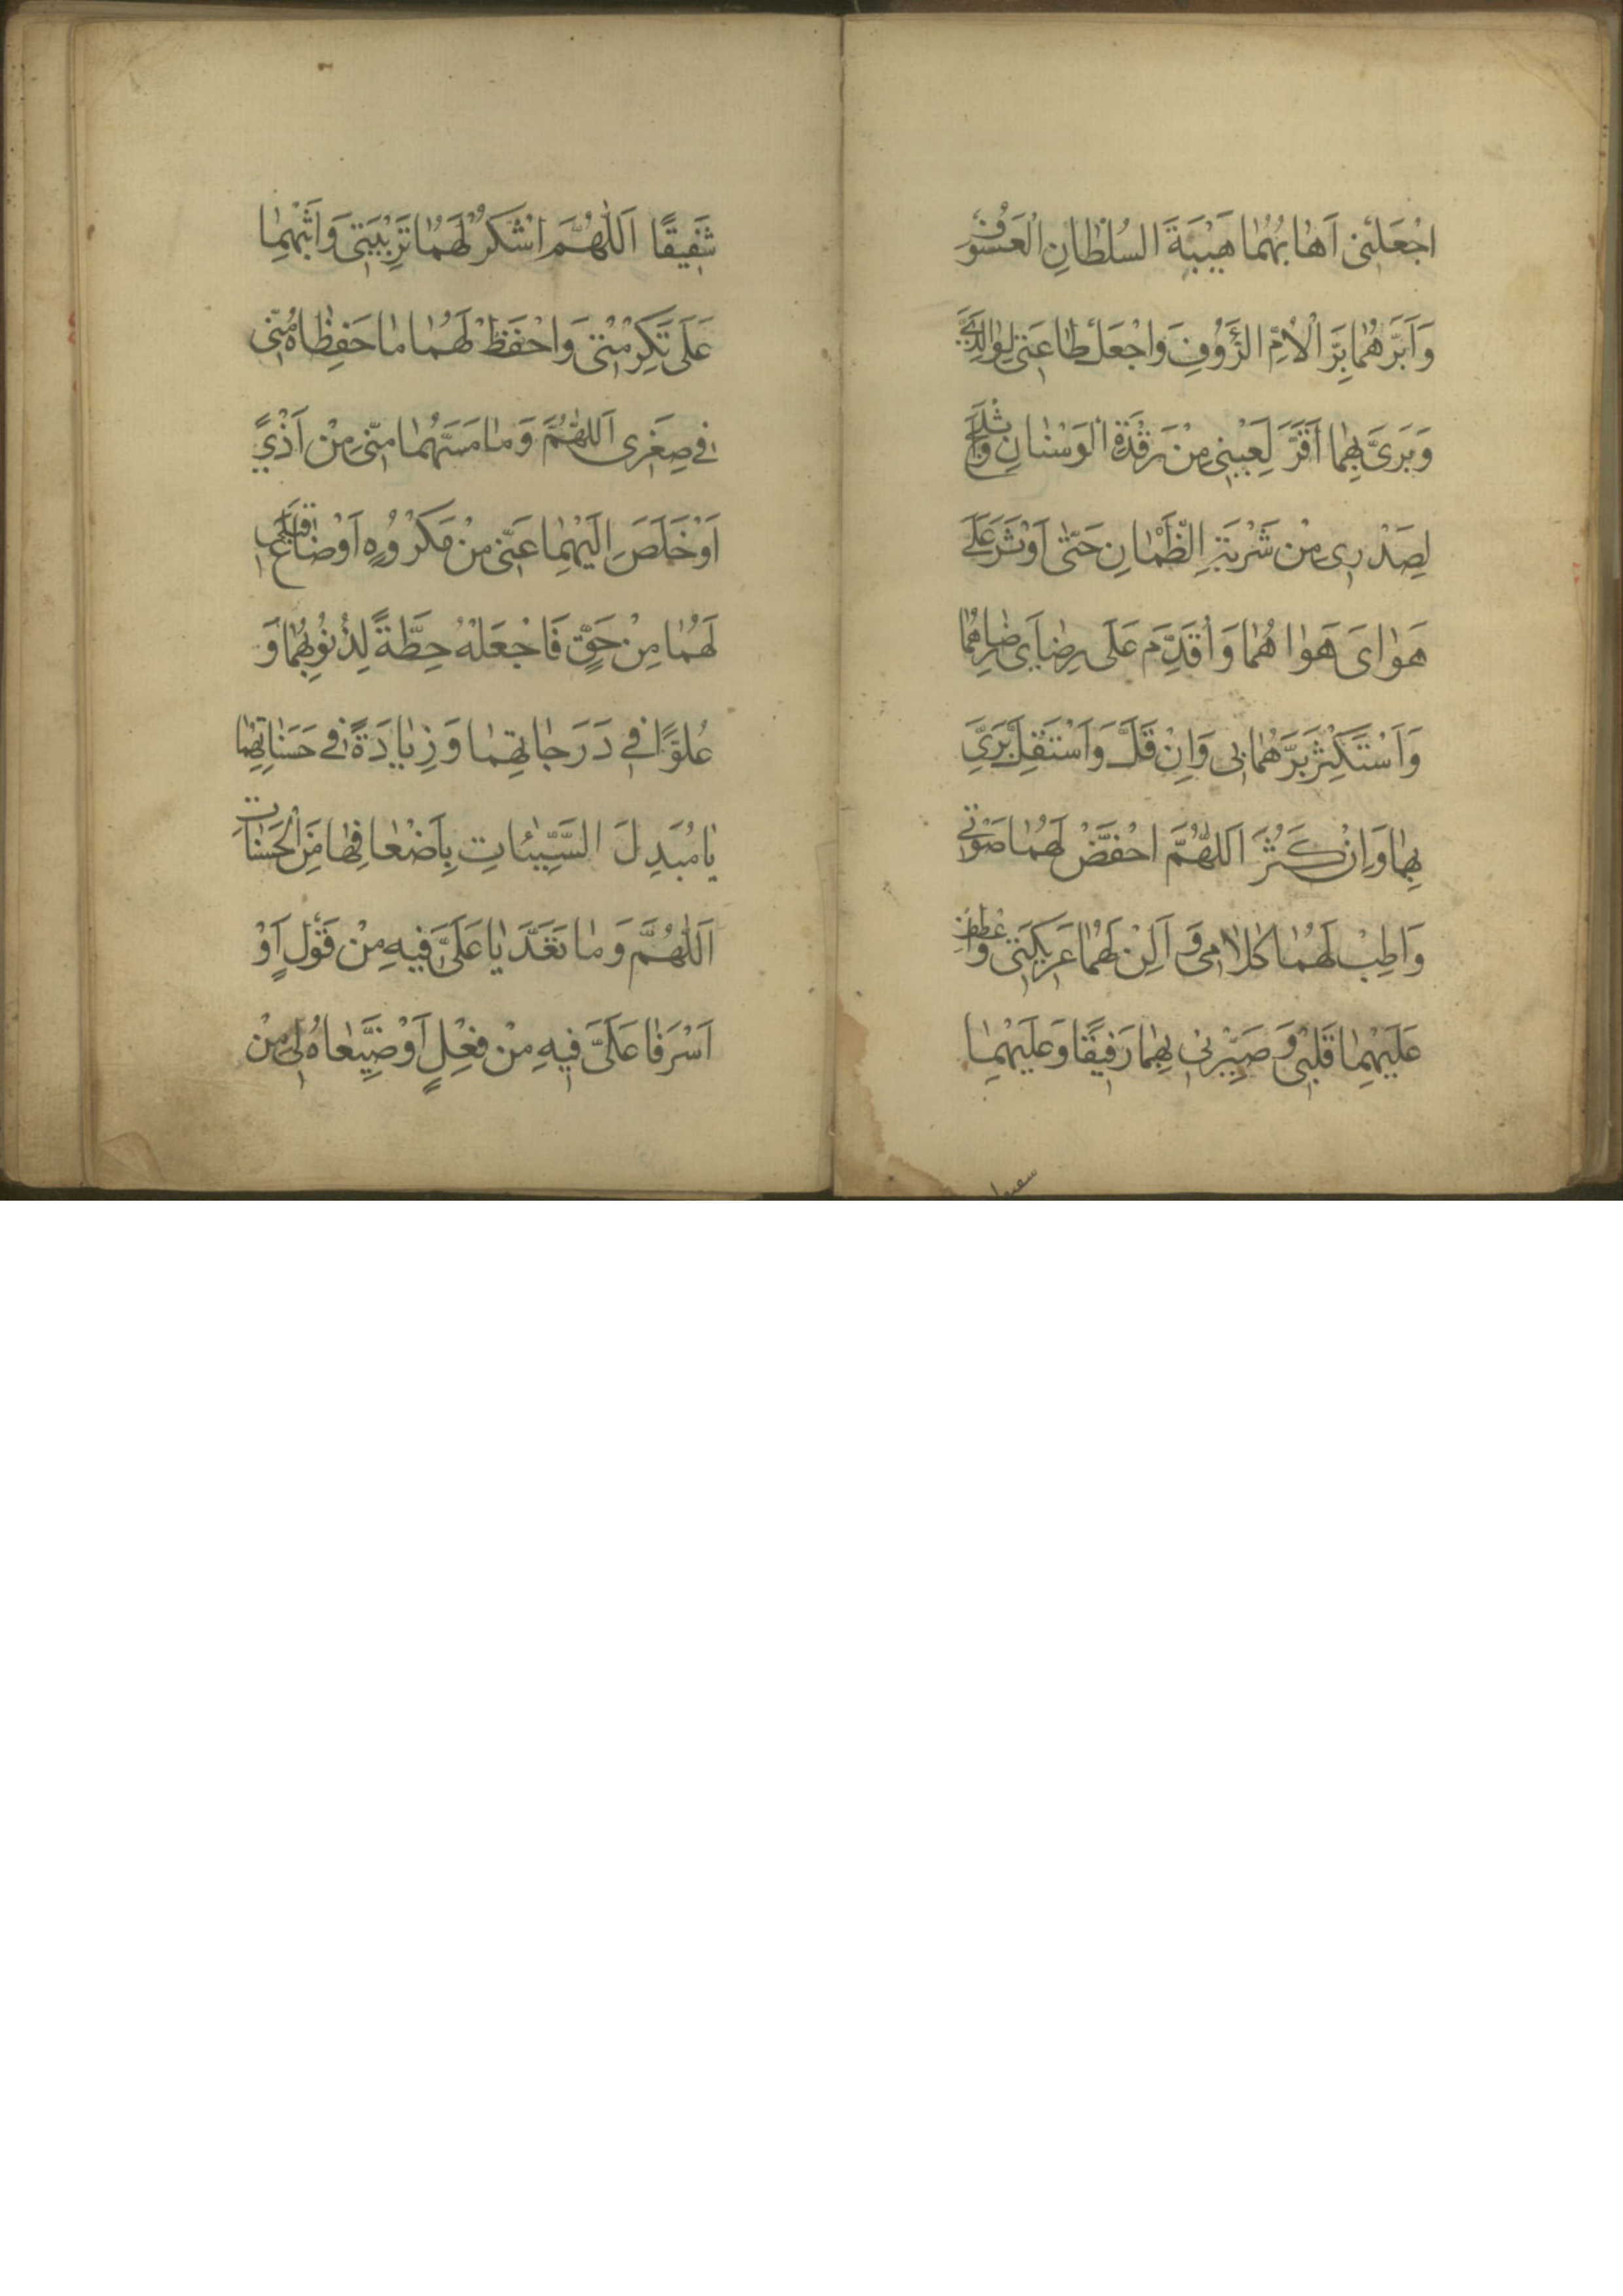 اجْعَلْنی اَهابُهُما هَیْبَةَ السُّلْطانِ الْعَسُوفِ
وَاَبَرُّهُما بِرَّ الْاُمِّ الرَّؤُوفِ وَاجْعَلْ طاعَتی لِوالِدَیَّ
وَبَرّیَ بِهِما اَقَرَّ لِعَیْنی مِنْ رَقْدَةِ الْوَسْنانِ وَاَثْلَجَ
لِصَدْری مِنْ شَرْبَةِ الظَّمْانِ حَتّٰی اُوثِرَ عَلٰی
هَوایَ هَواهُما وَاُقَدِّمَ عَلٰی رِضایَ رِضاهُما
وَاَسْتَکْثِرَ بَرَّهُما بی وَاِنْ قَلَّ وَاَسْتَقِلَّ بَرّی
بِهِما وَاِنْ کَثُرَ اَللّٰهُمَّ اخْفِضْ لَهُما صَوْتی
وَاَطِبْ لَهُما کَلامی وَ اَلِنْ لَهُما عَریکَتی وَاعْطِفْ
عَلَیْهِما قَلْبی وَ صَیِّرْنی بِهِما رَفیقًا وَعَلَیْهِما
شَفیقًا اَللّٰهُمَّ اشْکُرْ لَهُما تَرْبِیَتی وَاَثِبْهُما
عَلٰی تَکْرِمَتی وَاحْفَظْ لَهُما ما حَفِظاهُ مِنّی
فی صِغَری اَللّٰهُمَّ وَما مَسَّهُما مِنّی مِنْ اَذًی
اَوْ خَلَصَ اِلَیْهِما عَنّی مِنْ مَکْرُوهٍ اَوْ ضاعَ قِبَلی
لَهُما مِنْ حَقٍّ فَاجْعَلْهُ حِطَّةً لِذُنُوبِهِما وَ
عُلُوًّا فی دَرَجاتِهِما وَ زِیادَةً فی حَسَناتِهِما
یا مُبَدِّلَ السَّیِّئاتِ بِاَضْعافِها مِنَ الْحَسَناتِ
اَللّٰهُمَّ وَما تَعَدَّیا عَلَیَّ فیهِ مِنْ قَوْلٍ اَوْ
اَسْرَفا عَلَیَّ فیهِ مِنْ فِعْلٍ اَوْ ضَیَّعاهُ لی مِنْ